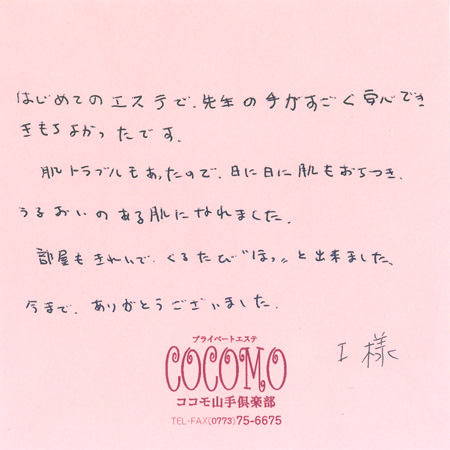 はじめてのエステで、先生の手がすごく安心でき
きもちよかったです。
肌トラブルもあったので、日に日に肌もおちつき、
うるおいのある肌になれました。
部屋もきれいで、くるたび"ほっ"と出来ました、
今まで、ありがとうございました。
I 様
プライベートエステ
COCOMO
ココモ山手倶楽部
TEL・FAX(0773)75-6675